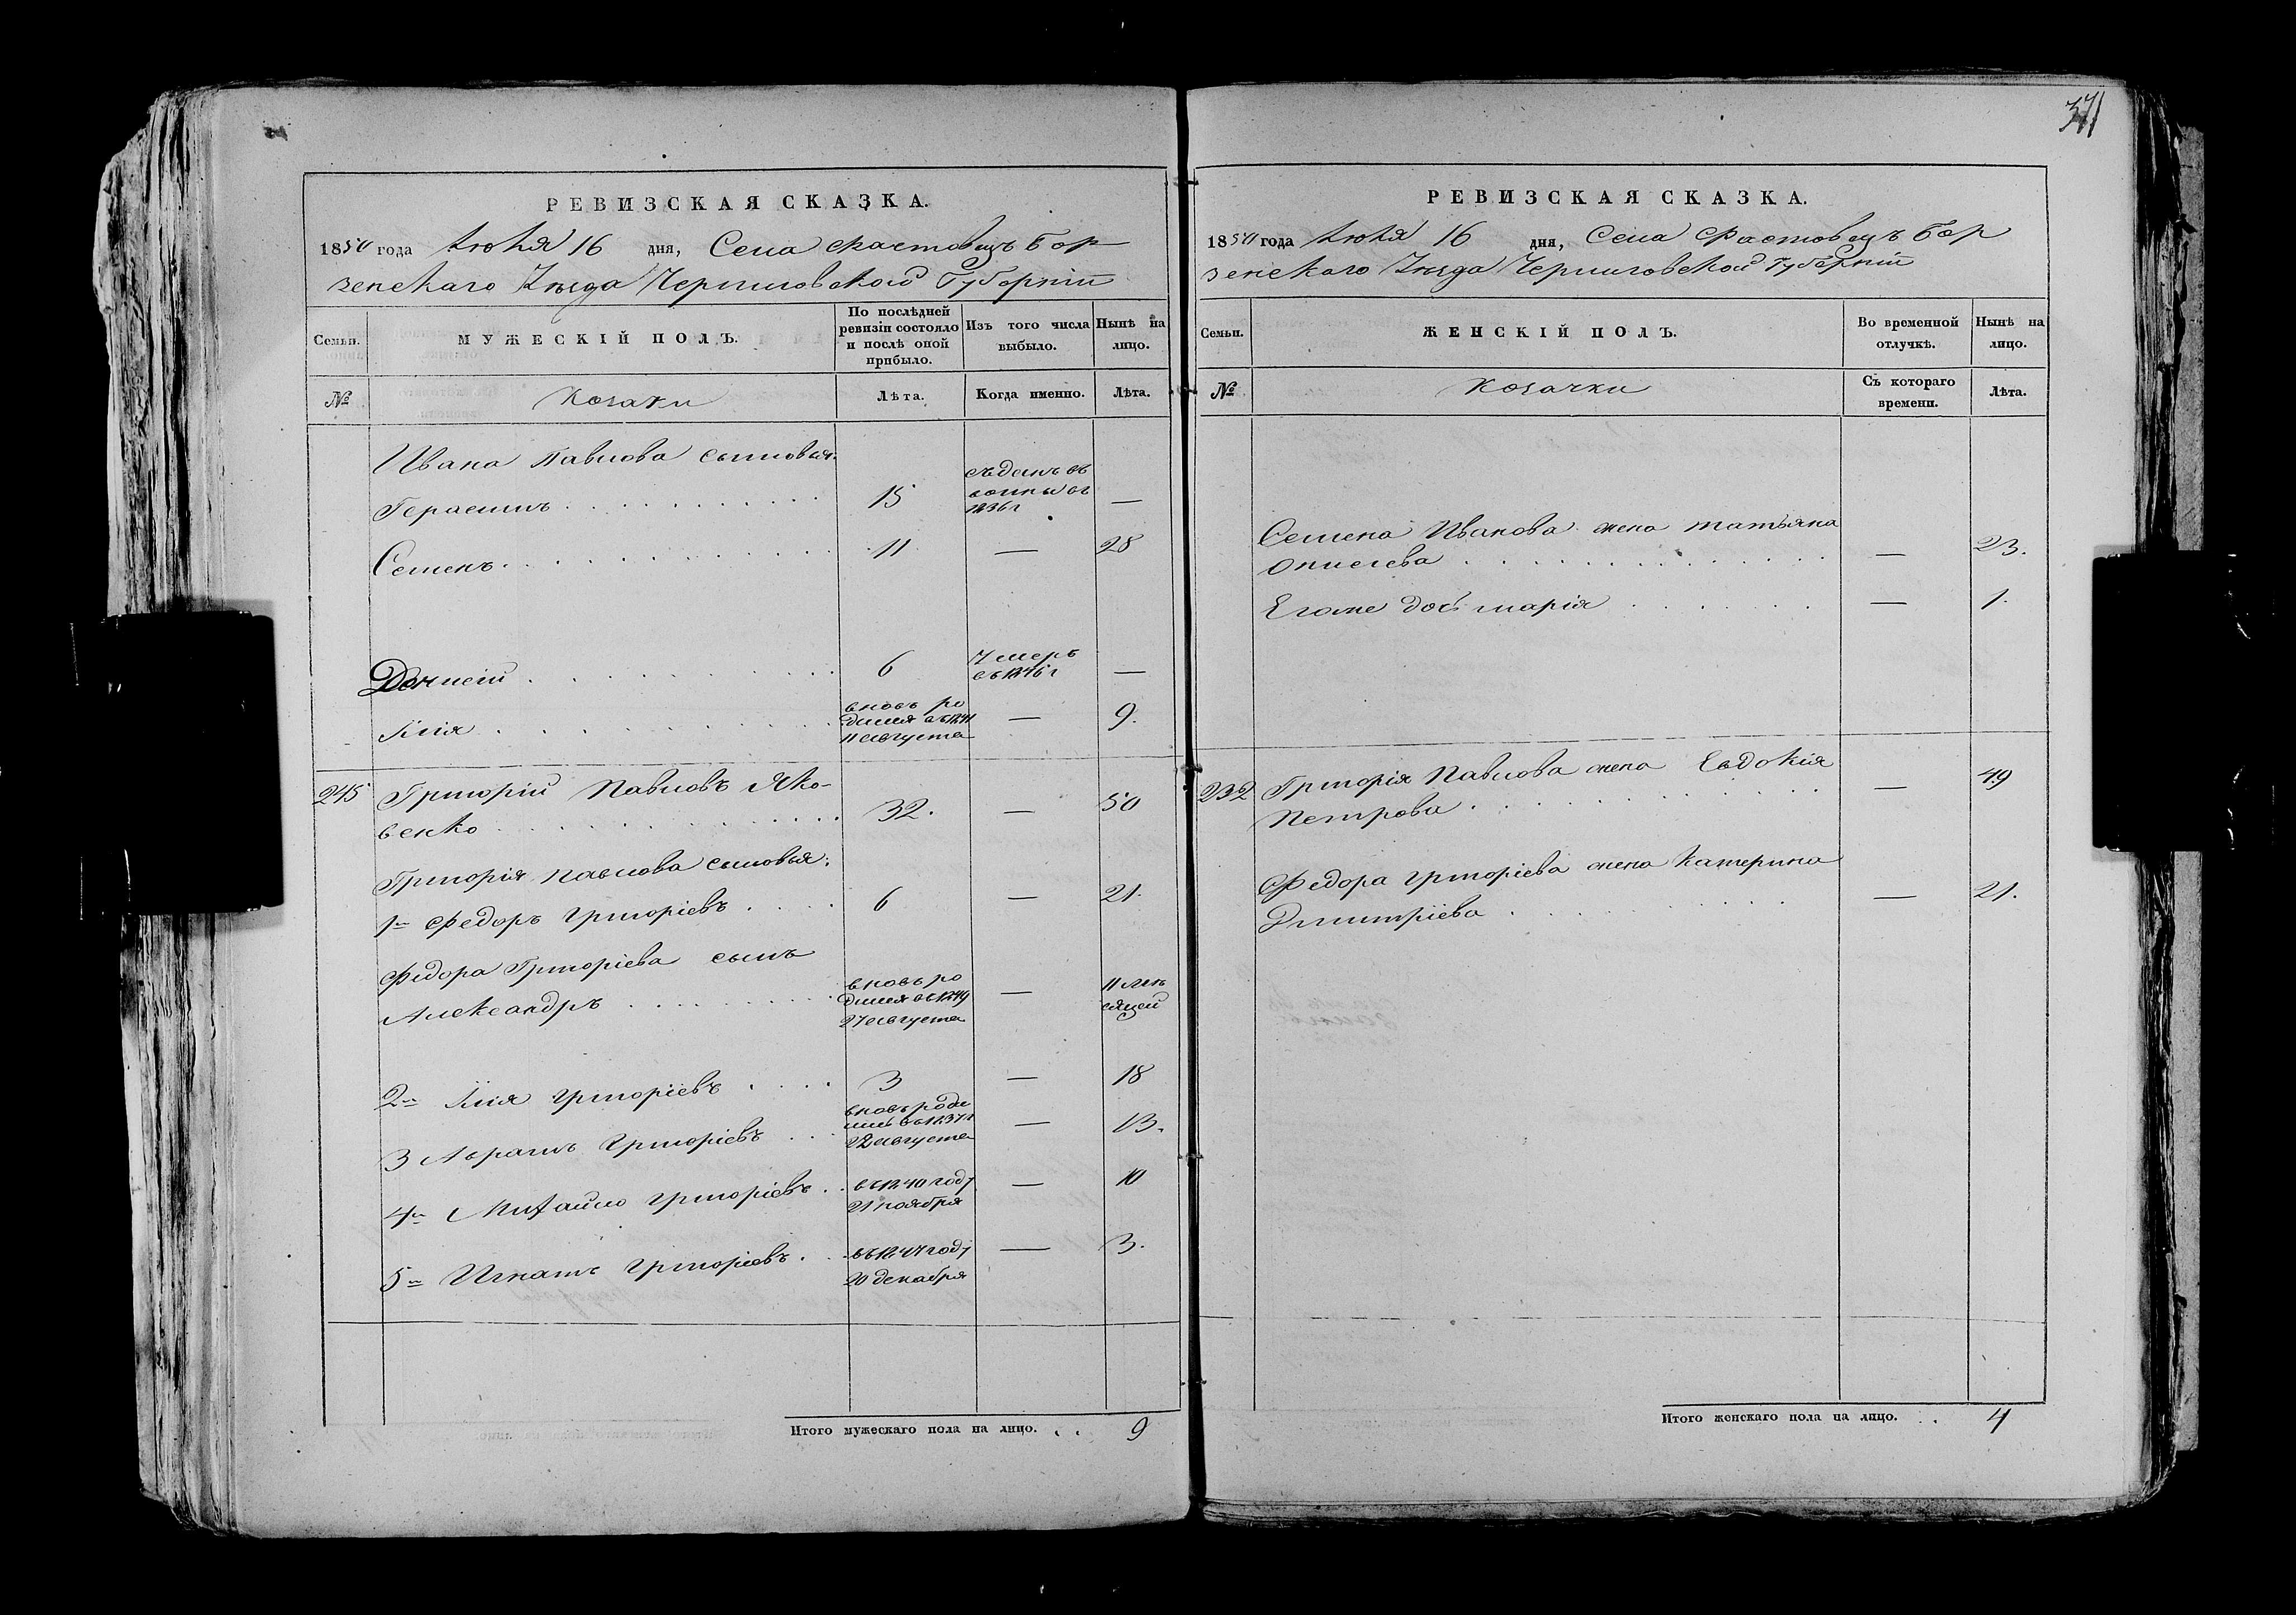 371
РЕВИЗСКАЯ СКАЗКА.
1850 года Июня 16 дня, Села Фастовецъ Бор
зенскаго Уѣзда Черниговской Губернiи
Семьи.
МУЖЕСКIЙ ПОЛЪ.
По послѣдней ревизiи состояло и послѣ оной прибыло.
Изъ того числа выбыло.
Нынѣ на лицо.
№
Козаки
Лѣта.
Когда именно.
Лѣта.
Ивана Павлова сыновья
Герасимъ 15 въ 1836 г —
Семенъ 11 — 28
6 Умеръ въ 1846 г —
Илiя вновь родился въ 1841 11 августа — 9.
245 Григорiй Павловъ Яко-
венко 32. — 50
Григорiя Павлова сыновья:
1й Федоръ Григорiевъ 6 — 21.
Федора Григорiева сынъ
Александръ вновь родился въ 1849 27 августа — 11 мѣсяцей
2й Илiя Григорiевъ 3 — 18
3 Абрамъ Григорiевъ вновь родился въ 1837 г 22 августа — 13.
4й Михайло Григорiевъ въ 1840 году 21 ноября — 10
5й Игнатъ Григорiевъ въ 1847 году 20 декабря — 3.
Итого мужескаго пола на лицо. . . 9
РЕВИЗСКАЯ СКАЗКА.
1850 года Июня 16 дня, Села Фастовецъ Бор
зенскаго Уѣзда Черниговской Губернiи
Семьи.
ЖЕНСКIЙ ПОЛЪ.
Во временной отлучкѣ.
Нынѣ на лицо.
№
Козачки
Съ котораго времени.
Лѣта.
Семена Иванова жена Татьяна
— 23.
Егоже дочь Марiя — 1.
232 Григорiя Павлова жена Евдокiя
Петрова — 49
Федора Григорiева жена Катерина
Дмитрiева — 21.
Итого женскаго пола на лицо. . . 4